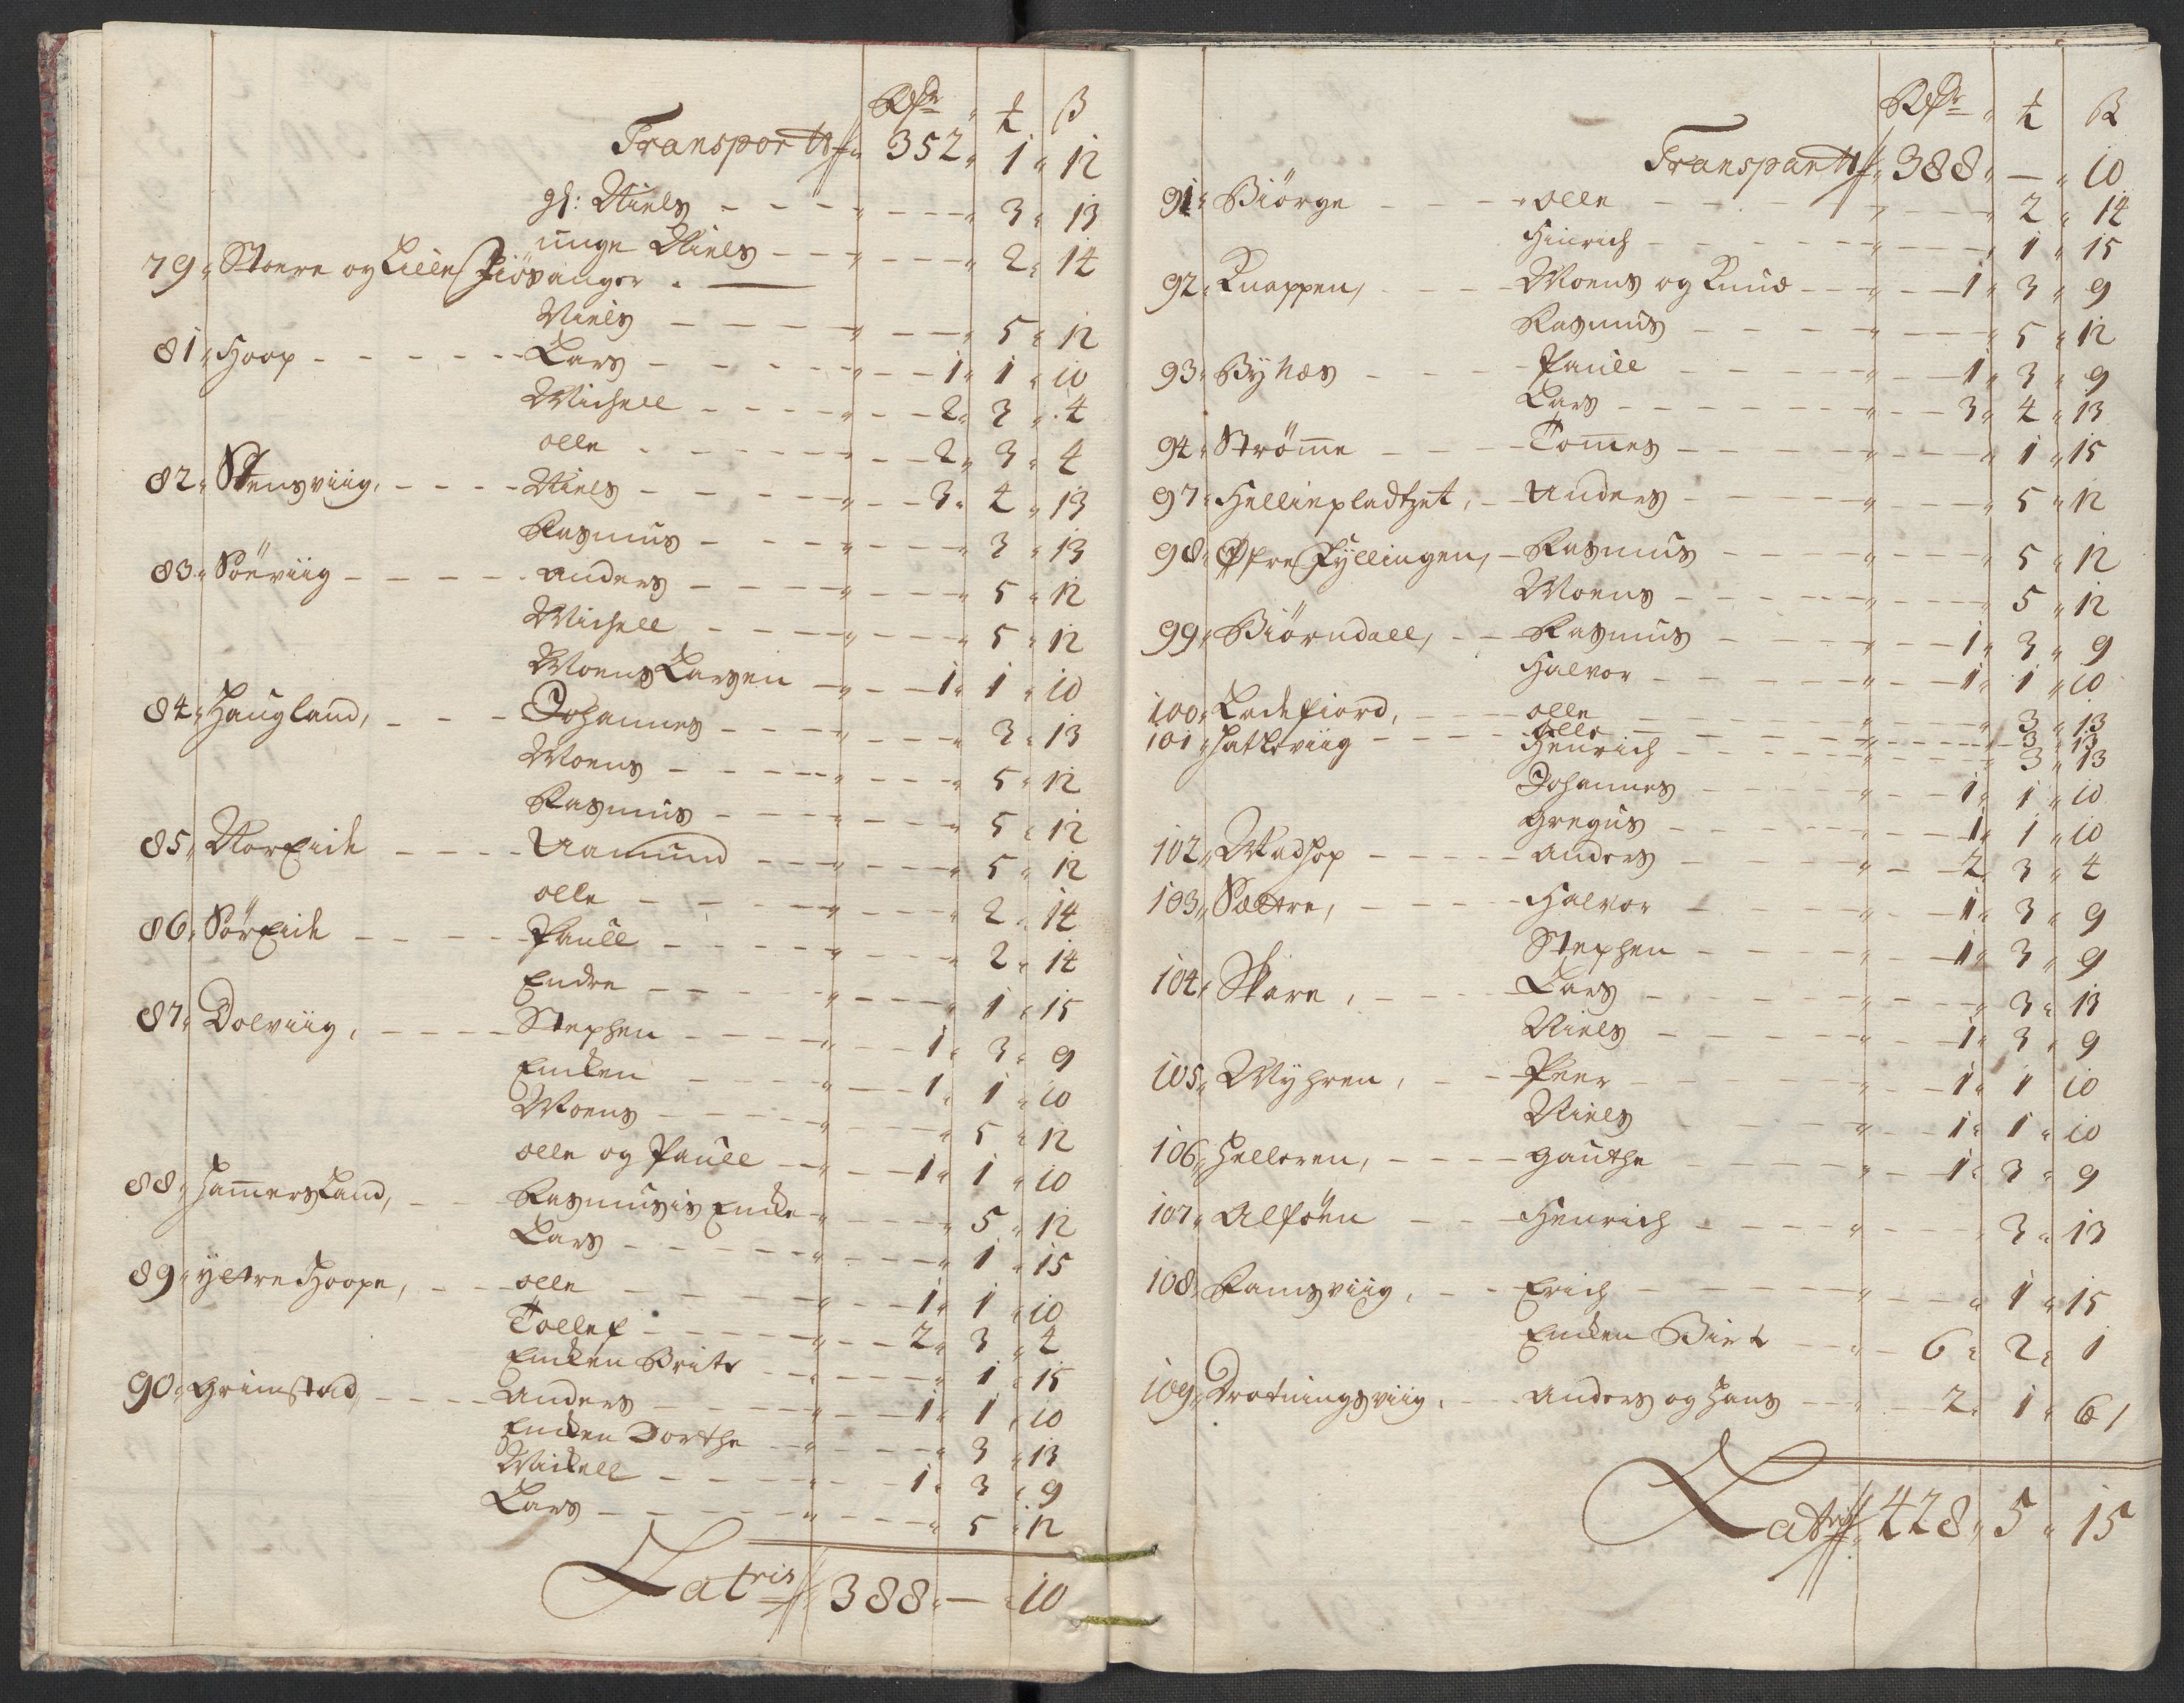 Rdr " ƚ " β
Transportt " 352 " 1 " 12
gl: Niels - - - " - - - " 3 " 13
unge Niels - - - " - - - " 2 " 14
79 " Stoere og Lille Fiøsanger . —
Niels - - - - " - - - " 5 " 12
81 " Hoop - - - - - Lars - - - - " - - 1 " 1 " 10
Michell - - - " - - 2 " 3 " 4
olle - - - - - " - - 2 " 3 " 4
82 " Stensviig, - - - - Niels - - - - " - - 3 " 4 " 13
Rasmus - - - " - - - " 3 " 13
83 " Söreviig - - - - - anders - - - " - - - " 5 " 12
Michell - - - " - - - " 5 " 12
Moens Larsen - " - - 1 " 1 " 10
84 " Haugland, - - - Johannes - - - " - - - " 3 " 13
Moens - - - - " - - - " 5 " 12
Rasmus - - - " - - - " 5 " 12
85 " Nor Eide - - - - Aamund - - - " - - - " 5 " 12
olle - - - - " - - - " 2 " 14
86 " Sör Eide - - - - - Paull - - - - " - - - " 2 " 14
Endre - - - - " - - - " 1 " 15
87 " Dolviig, - - - - Stephen - - - " - - 1 " 3 " 9
Encken - - - " - - 1 " 1 " 10
Moens - - - " - - - " 5 " 12
olle og Paull - " - - 1 " 1 " 10
88 " Hamersland, - - Rasmusis Encke " - - - " 5 " 12
Lars - - - - " - - - " 1 " 15
89 " ÿttre Hoope, - - olle - - - - " - - 1 " 1 " 10
Tollef - - - - " - - 2 " 3 " 4
Encken Brite - " - - - " 1 " 15
90 " Grimstad, - - - - Anders - - - " - - 1 " 1 " 10
Encken Dorthe - " - - - " 3 " 13
Mickell - - - " - - 1 " 3 " 9
Lars - - - - " - - - " 5 " 12
Latris 388 " — " 10
Rdr " ƚ " β
Transportt " 388 " — " 10
91 " Biörge - - - - olle - - - - " - - - " 2 " 14
Hinrich - - - - " - - - " 1 " 15
92 " Knappen, - - - Moens og Knud - - " - - 1 " 3 " 9
Rasmus - - - - " - - - " 5 " 12
93 " Bynes - - - - Paull - - - - " - - 1 " 3 " 9
Lars - - - - - " - - 3 " 4 " 13
94 " Strömme - - - Tommes - - - - " - - - " 1 " 15
97 " Hellinpladtzet, - Anders - - - - " - - - " 5 " 12
98 " Øfre Fyllingen, - Rasmus - - - " - - - " 5 " 12
Moens - - - - " - - - " 5 " 12
99 " Biörndall, - - Rasmus - - - " - - 1 " 3 " 9
Halvor - - - - " - - 1 " 1 " 10
100 " Ladefiord, - - - olle - - - - " - - - " 3 " 13
olle - - - - " - - - " 3 " 13
101 " Hatleviig - - - - Henrich - - - - " - - - " 3 " 13
Johannes - - - " - - 1 " 1 " 10
Gregus - - - - " - - 1 " 1 " 10
102 " Vadhop - - - - anders - - - " - - 2 " 3 " 4
103 " Sættre, - - - - Halvor - - - " - - 1 " 3 " 9
Stephen - - - " - - 1 " 3 " 9
104 " Skare, - - - - Lars - - - - " - - - " 3 " 13
Niels - - - - " - - 1 " 3 " 9
105 " Myhren, - - Peer - - - - " - - 1 " 1 10
Niels - - - - " - - 1 " 1 " 10
106 " Helleren, - - - Gauthe - - - " - - 1 " 3 " 9
107 " Alföen - - - Henrich - - - " - - - " 3 " 13
108 " Ramsviig, - - Erich - - - - " - - - " 1 " 15
Encken Birt - - " - 6 " 2 " 1
109 " Drotningsviig, - - anders og Hans - - " - - 2 " 1 " 6
Latris 428 " 5 " 15